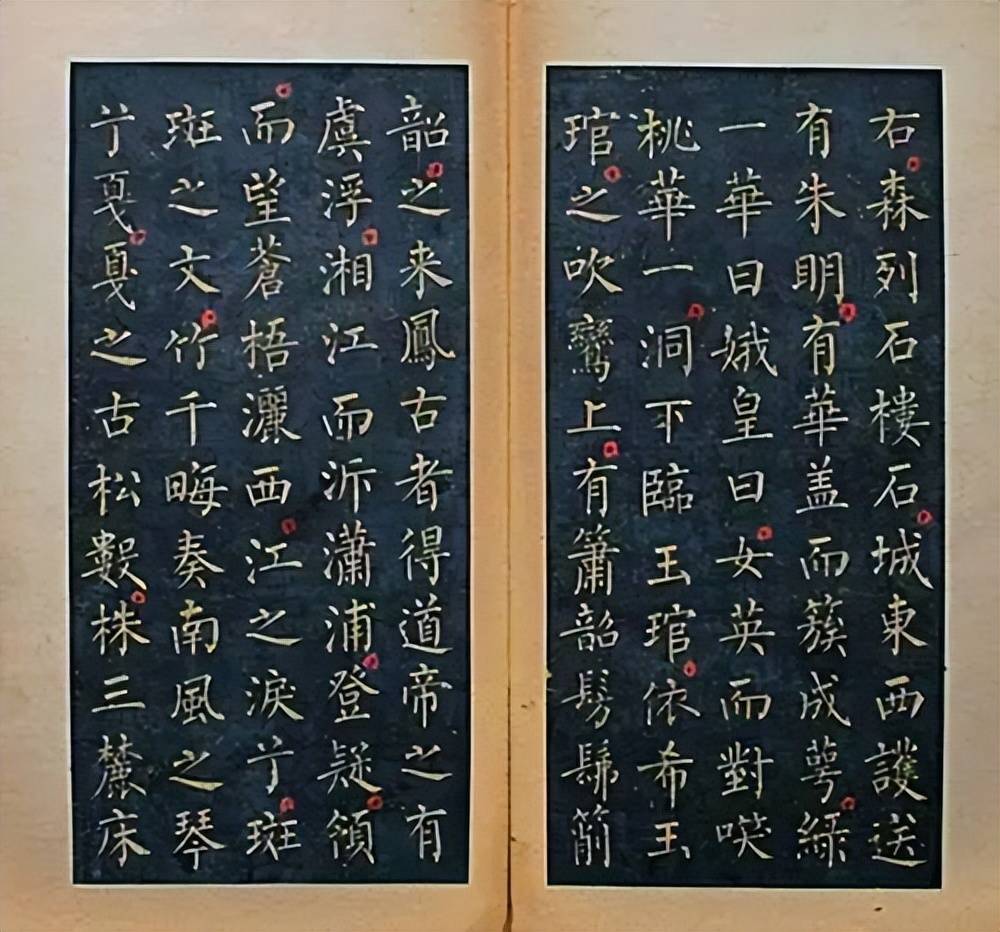 右森列石樓石城東西護送
有朱明有華盖而簇成萼綠
一華曰娥皇曰女英而對唉
桃華一洞下臨玉琯依希玉
琯之吹鸞上有簫韶髣髴箾
韶之来鳳古者得道帝之有
虞浮湘江而泝瀟浦登疑領
而望蒼梧灑西江之淚亍斑
斑之文竹千晦奏南風之琴
亍戛戛之古松數株三麓床